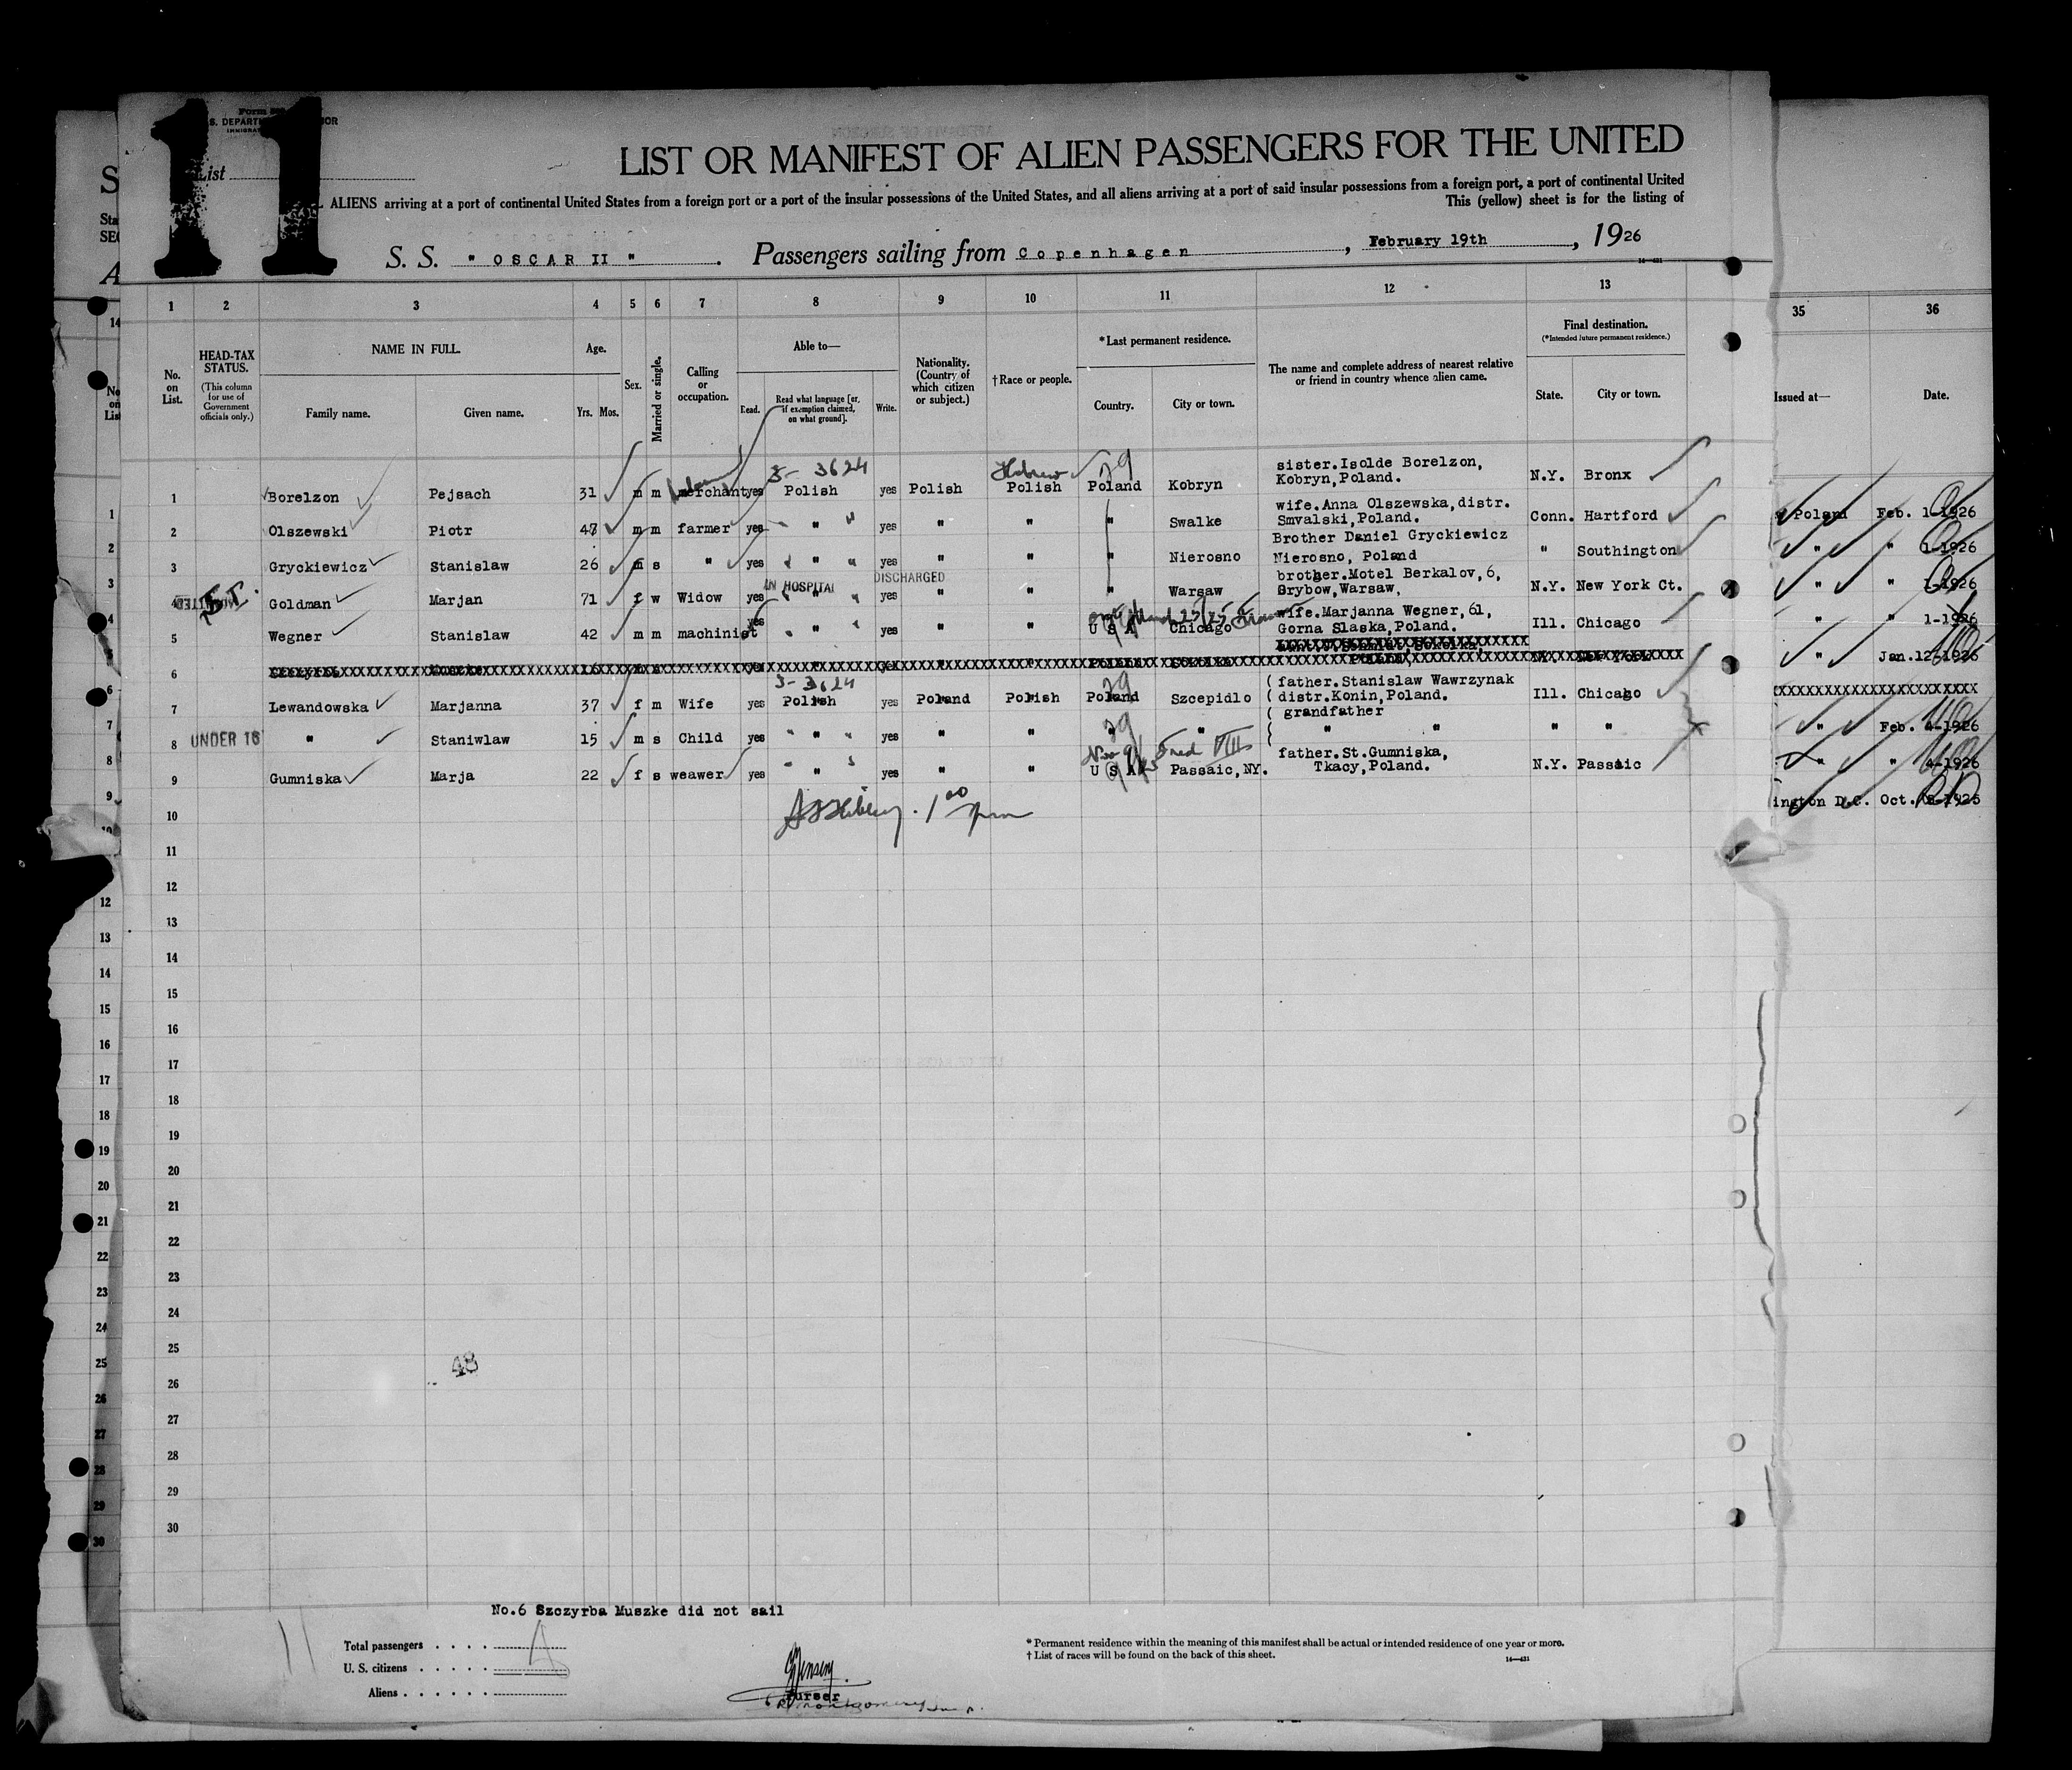 11
Form
S. DEPART
List
LIST OR MANIFEST OF ALIEN PASSENGERS FOR THE UNITED
ALIENS arriving at a port of continental United States from a foreign port or a port of the insular possessions of the United States, and all aliens arriving at a port of said insular possessions from a foreign port, a port of continental United
This (yellow) sheet is for the listing of
S. S. " OSCAR II " . Passengers sailing from Copenhagen , February 19th , 1926
1 2 3 4 5 6 7 8 9 10 11 12 13 35 36
No. on List.
HEAD-TAX STATUS.
(This column for use of Government officials only.)
NAME IN FULL.
Family name. Given name.
Age.
Yrs. Mos.
Sex.
Married or single.
Calling or occupation.
Able to—
Read.
Read what language [or, if exemption claimed, on what ground].
Write.
Nationality. (Country of which citizen or subject.)
†Race or people.
*Last permanent residence.
Country. City or town.
The name and complete address of nearest relative or friend in country whence alien came.
Final destination.
(*Intended future permanent residence.)
State. City or town.
Issued at— Date.
3- 3624 Hebrew
1 Borelzon Pejsach 31 m m merchant yes Polish yes Polish Polish Poland Kobryn sister.Isolde Borelzon, Kobryn,Poland. N.Y. Bronx
2 Olszewski Piotr 47 m m farmer yes " yes " " " Swalke wife.Anna Olszewska,distr. Smvalski,Poland. Conn. Hartford Poland Feb. 1-1926
3 Gryckiewicz Stanislaw 26 m s " yes " yes " " " Nierosno Brother Daniel Gryckiewicz Nierosno, Poland " Southington " " 1-1926
IN HOSPITAL DISCHARGED
4 Goldman Marjan 71 f w Widow yes " yes " " " Warsaw brother.Motel Berkalov,6, Grybow,Warsaw, N.Y. New York Ct. " " 1-1926
5 Wegner Stanislaw 42 m m machinist yes " yes " " U S A Chicago wife.Marjanna Wegner,61, Gorna Slaska,Poland. Ill. Chicago " " 1-1926
6
" Jan.12-1926
3-3624
7 Lewandowska Marjanna 37 f m Wife yes Polish yes Poland Polish Poland Szcepidlo father.Stanislaw Wawrzynak distr.Konin,Poland. Ill. Chicago
8 UNDER 16 " Staniwlaw 15 m s Child yes " yes " " " " grandfather " " " " " Feb. 4-1926
9 Gumniska Marja 22 f s weawer yes " yes " " U S A Passaic,NY. father.St.Gumniska, Tkacy,Poland. N.Y. Passaic " " 4-1926
ington D.C. Oct. -1925
10
11
12
13
14
15
16
17
18
19
20
21
22
23
24
25
48
26
27
28
29
30
No.6 Szczyrba Muszke did not sail
Total passengers . . . .
U. S. citizens . . . . .
Aliens . . . . . .
Purser
* Permanent residence within the meaning of this manifest shall be actual or intended residence of one year or more.
† List of races will be found on the back of this sheet.
14—431